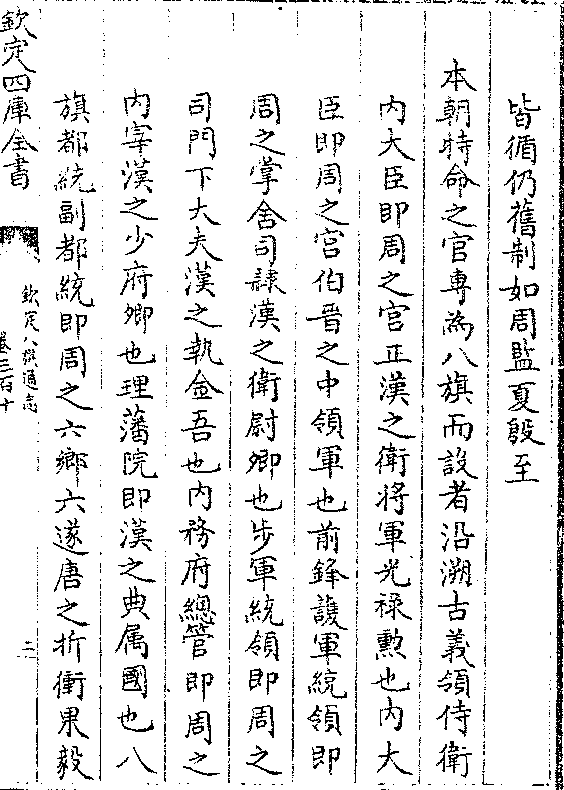 皆循仍舊制如周監夏殷至
本朝特命之官專為八旗而設者沿溯古義領侍衛
内大臣即周之宫正漢之衛將軍光禄勲也内大
臣即周之宫伯晋之中領軍也前鋒護軍統領即
周之掌舍司隷漢之衛尉卿也步軍統領即周之
司門下大夫漢之執金吾也内務府總管即周之
内宰漢之少府卿也理藩院即漢之典属國也八
旗都統副都統即周之六鄉六遂唐之折衝果毅
欽定四庫全書
欽定八旗通志
卷三百十
二